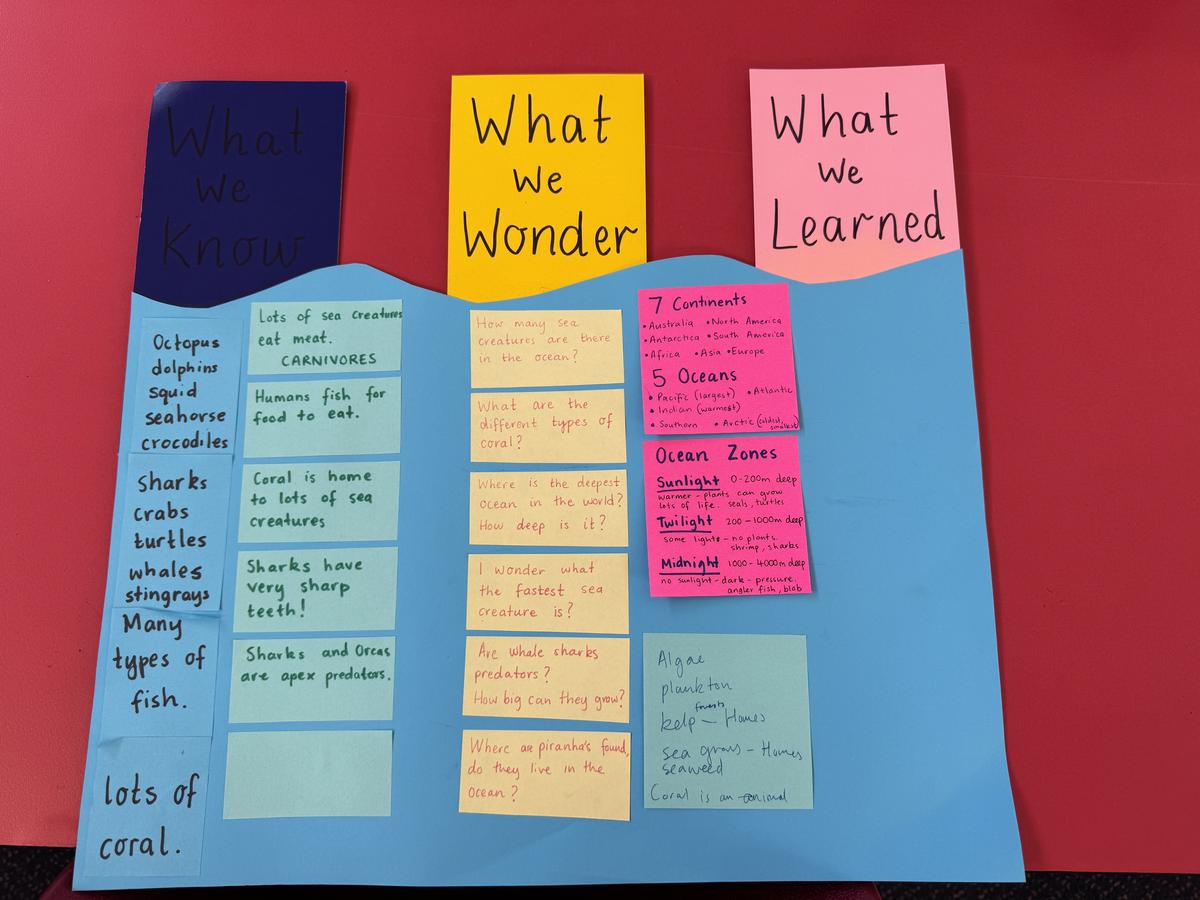 What
we
Know
What
we
Wonder
What
we
Learned
Octopus
dolphins
squid
seahorse
crocodiles
Sharks
crabs
turtles
whales
stingrays
Many
types of
fish.
lots of
coral.
Lots of sea creatures
eat meat.
CARNIVORES
Humans fish for
food to eat.
Coral is home
to lots of sea
creatures
Sharks have
very sharp
teeth!
Sharks and Orcas
are apex predators.
How many sea
creatures are there
in the ocean?
What are the
different types of
coral?
Where is the deepest
ocean in the world?
How deep is it?
I wonder what
the fastest sea
creature is?
Are whale sharks
predators?
How big can they grow?
Where are piranha's found,
do they live in the
ocean?
7 Continents
• Australia • North America
• Antarctica • South America
• Africa • Asia • Europe
5 Oceans
• Pacific (largest) • Atlantic
• Indian (warmest)
• Southern • Arctic (coldest, smallest)
Ocean Zones
Sunlight 0-200m deep
warmer - plants can grow
lots of life. seals, turtles
Twilight 200-1000m deep
some light - no plants.
shrimp, sharks
Midnight 1000-4000m deep
no sunlight - dark - pressure.
angler fish, blob
Algae
plankton
kelp forests - Homes
sea grass - Homes
seaweed
Coral is an animal